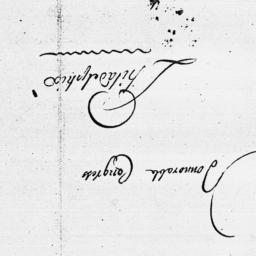 Honorable Congress
Philadelphia